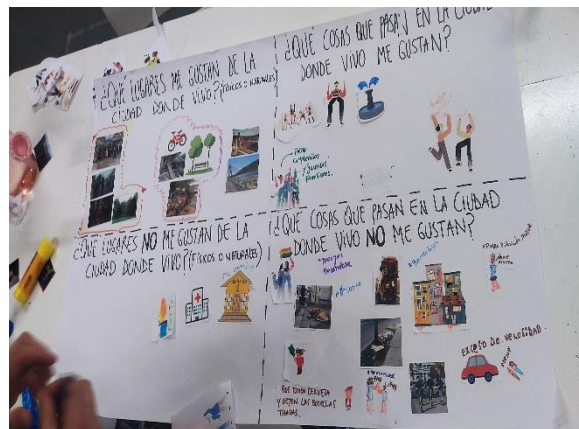 ¿QUÉ LUGARES ME GUSTAN DE LA
CIUDAD DONDE VIVO? (FÍSICOS O NATURALES)
¿QUÉ COSAS QUE PASAN EN LA CIUDAD
DONDE VIVO ME GUSTAN?
¿QUÉ LUGARES NO ME GUSTAN DE LA
CIUDAD DONDE VIVO? (FÍSICOS O NATURALES)
¿QUÉ COSAS QUE PASAN EN LA CIUDAD
DONDE VIVO NO ME GUSTAN?
EXCESO DE VELOCIDAD
QUE TOMEN CERVEZA
Y DEJEN LAS BOTELLAS
TIRADAS.